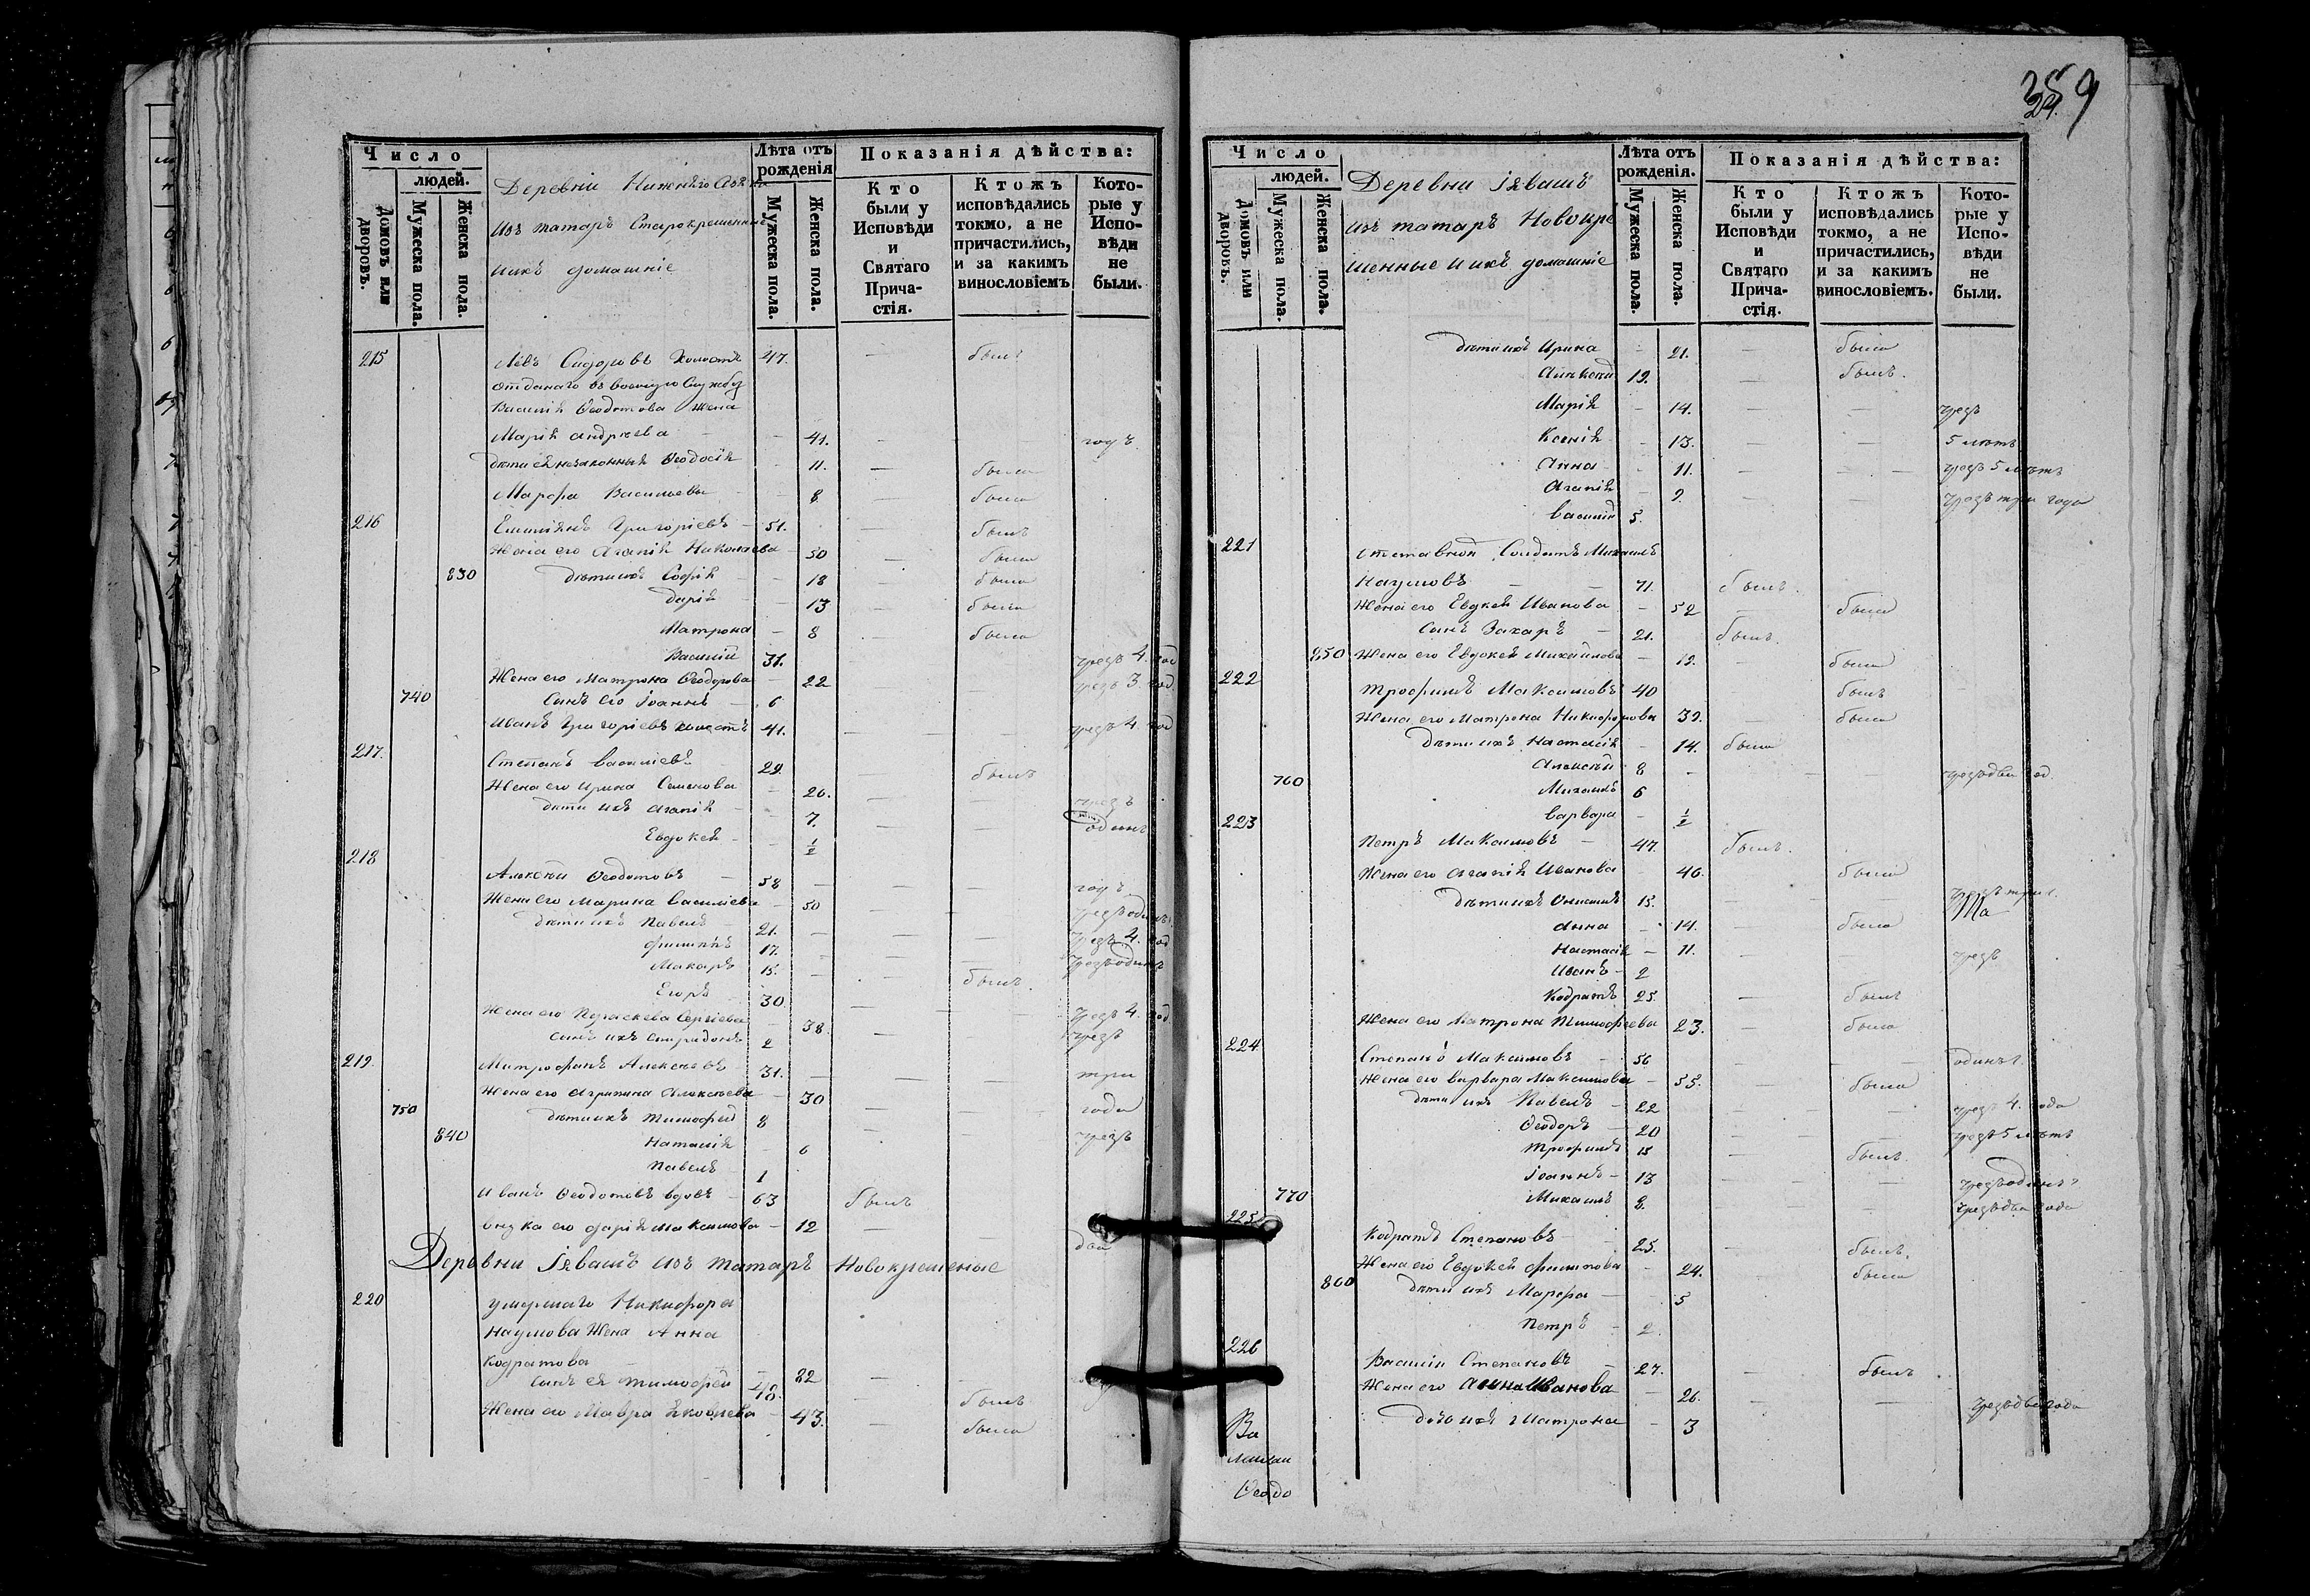 359
24.
Число
людей.
Домовъ или дворовъ.
Мужеска пола.
Женска пола.
Деревни Нижняго
изъ татаръ Старокрещенные
ихъ домашніе
Лѣта отъ рожденія
Мужеска пола.
Женска пола.
Показанія дѣйства:
Кто были у Исповѣди и Святаго Причастія.
Ктожъ исповѣдались токмо, а не причастились, и за какимъ винословіемъ
Которые у Исповѣди не были.
215 Левъ Сидоровъ холостъ 47. — былъ
отданаго въ военную службу
Василія Ѳеодотова жена
Марія Андреева — 41. — годъ
дѣти ея незаконныя Ѳеодосія — 11. — была
Марѳа Васильева — 8 — была
216 Емиліянъ Григоріевъ — 51. былъ
Жена его Агапія Николаева — 50 — была
830 дѣти ихъ Софія — 18 — была
Дарія — 13 — была
Матрона — 8 — была
Василій 31. чрезъ 4. год
Жена его Матрона Ѳеодорова — 22 — чрезъ 3. год.
740 Сынъ его Іоаннъ — 6
Иванъ Григоріевъ холостъ 41. — чрезъ 4. год
217. Степанъ Василіевъ 29. былъ
Жена его Ирина Семенова — 26. — чрезъ
дѣти ихъ Агапія — 7. — одинъ
Евдокея — 1/2
218 Алексѣй Ѳеодотовъ — 58 — годъ
Жена его Марина Василіева — 50 — чрезъ одинъ
дѣти ихъ Павелъ 21. — чрезъ 4. год
Филиппъ 17. — чрезъ одинъ
Макаръ 15. — былъ.
Егоръ 30
Жена его Параскева Сергіева 38. — чрезъ 4. год
сынъ ихъ Спиридонъ 2 чрезъ
219. Митрофанъ Алексѣевъ 31. — три
Жена его Агрипина Алексѣева — 30 — года
750 дѣти ихъ Тимофей 8
840 Наталія — 6 чрезъ
Павелъ 1
Иванъ Ѳеодотовъ вдовъ — 63 былъ
внука его Дарія Максимова — 12 — два
Деревни Іяваш изъ татаръ Новокрещеные
220 умершаго Никифора
Наумова Жена Анна
Кодратова — 82 —
сынъ ея Тимофей 48. былъ
Жена его Мавра Яковлева — 43. — была
Число
людей.
Домовъ или дворовъ.
Мужеска пола.
Женска пола.
Деревни Іяваш
изъ татаръ Новокре
щенные и ихъ домашніе
Лѣта отъ рожденія.
Мужеска пола.
Женска пола.
Показанія дѣйства:
Кто были у Исповѣди и Святаго Причастія.
Ктожъ исповѣдались токмо, а не причастились, и за какимъ винословіемъ.
Которые у Исповѣди не были.
дѣти ихъ Ирина — 21. — была
Алексѣй 19. — былъ.
Марія — 14. — чрезъ
Ксенія — 13. — 5 лѣтъ
Анна — 11. — чрезъ 5 лѣтъ
Агапія — 9. чрезъ три года
Василій 5.
221 отставной Солдатъ Михаилъ
Наумовъ — 71. былъ.
Жена его Евдокея Иванова — 52 — была
сынъ Захаръ — 21. былъ.
850 Жена его Евдокея Михайлова — 19. — была
222 Трофимъ Максимовъ 40 былъ
Жена его Матрона Никифорова 39. — была
дѣти ихъ Настасія — 14. была
Алексѣй 8 — чрезъ два год.
760 Михаилъ 6
Варвара — 1/2
223 Петръ Максимовъ — 47. былъ.
Жена его Агапія Иванова 46. была
дѣти ихъ 15. — чрезъ три г.
Анна — 14. — была
Настасія — 11. чрезъ
Иванъ — 2
Кодратъ 25. — былъ
Жена его Матрона Тимофеева 23. — была
224. Степанъ Максимовъ — 56 — одинъ г.
Жена его Варвара Максимова — 55. — была
дѣти ихъ Павелъ — 22 — чрезъ 4. года
Ѳеодоръ — 20 — чрезъ 5 лѣтъ
Трофимъ 15 — былъ.
Іоаннъ — 13 — чрезъ одинъ г
770 Михаилъ 8. чрезъ два года
225 Кодратъ Степановъ — 25. — былъ.
Жена его Евдокея Филипова — 24. была
860 дѣти ихъ Марѳа — 5
Петръ — 2.
226 Василій Степановъ — 27. — былъ.
Жена его Анна Иванова — 26. — чрезъ два года
дочь ихъ Матрона — 3
Ва
Ѳеодо